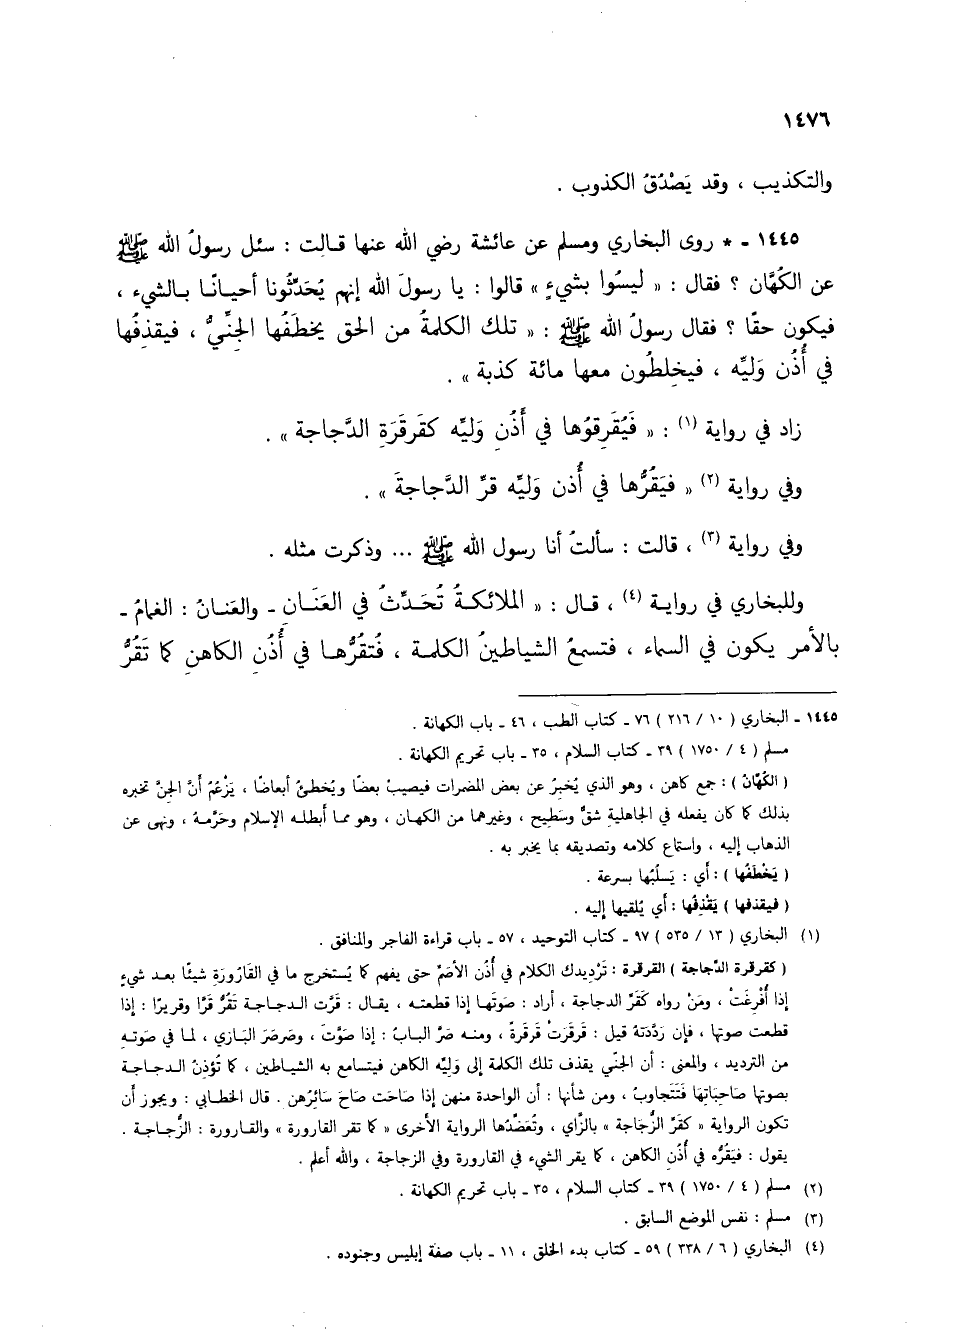 ١٤٧٦
والتكذيب ، وقد يَصْدُقُ الكذوب .
١٤٤٥ - * روى البخاري ومسلم عن عائشة رضي الله عنها قالت : سئل رسولُ الله ﷺ
عن الكُهَّان ؟ فقال : « ليسُوا بشيءٍ » قالوا : يا رسولَ الله إنهم يُحَدِّثُونا أحيانًا بالشيء ،
فيكون حقًا ؟ فقال رسولُ الله ﷺ : « تلك الكلمةُ من الحق يخطَفُها الجِنِّيُّ ، فيقذِفُها
في أُذُن وَليِّه ، فيخلِطُون معها مائة كذبة » .
زاد في رواية (١) : « فَيُقَرقِرُها في أُذُنِ وَليِّه كقَرقَرَةِ الدَّجاجة » .
وفي رواية (٢) « فيَقُرُّها في أُذن وَليِّه قرَّ الدَّجاجةَ » .
وفي رواية (٣) ، قالت : سألتُ أنا رسول الله ﷺ ... وذكرت مثله .
وللبخاري في رواية (٤) ، قال : « الملائكةُ تُحَدِّثُ في العَنَانِ - والعَنانُ : الغمامُ -
بالأمر يكون في السماء ، فتسمعُ الشياطينُ الكلمة ، فَتقُرُّها في أُذُنِ الكاهنِ كما تَقُرُّ
١٤٤٥ - البخاري ( ١٠ / ٢١٦ ) ٧٦ - كتاب الطب ، ٤٦ - باب الكهانة .
مسلم ( ٤ / ١٧٥٠ ) ٣٩ - كتاب السلام ، ٣٥ - باب تحريم الكهانة .
( الكُهَّانُ ) : جمع كاهن ، وهو الذي يُخبِرُ عن بعض المضمرات فيصيبُ بعضًا ويُخطئُ أبعاضًا ، يَزْعُمُ أنَّ الجنَّ تخبره
بذلك كما كان يفعله في الجاهلية شقٌّ وسَطيح ، وغيرهما من الكهان ، وهو مما أبطله الإسلام وحَرَّمهُ ، ونهى عن
الذهاب إليه ، واستماع كلامه وتصديقه بما يخبر به .
( يَخْطَفُها ) : أي : يَسلُبُها بسرعة .
( فيقذفها ) يَقْذِفُها : أي يُلقيها إليه .
(١) البخاري ( ١٣ / ٥٣٥ ) ٩٧ - كتاب التوحيد ، ٥٧ - باب قراءة الفاجر والمنافق .
( كقرقرة الدَّجاجة ) القرقرة : تَرْدِيدك الكلام في أُذُن الأصَمِّ حتى يفهم كما يُستخرج ما في القَارُورَةِ شيئًا بعد شيءٍ
إذا أُفْرِغَتْ ، ومَنْ رواه كَقَرِّ الدجاجة ، أراد : صَوتَها إذا قطعته ، يقال : قَرَّت الدجاجة تَقُرُّ قَرًّا وقريرًا : إذا
قطعت صوتها ، فإن رَدَّدَتهُ قيل : قَرقَرَتْ قَرقَرةً ، ومنه صَرَّ البابُ : إذا صَوَّتَ ، وصَرصَرَ البَازي ، لما في صَوتهِ
من الترديد ، والمعنى : أن الجنّي يقذف تلك الكلمة إلى وَليِّه الكاهن فيتسامع به الشياطين ، كما تُؤذِنُ الدجاجة
بصوتها صَاحِبَاتِهَا فَتَتَجاوبُ ، ومن شأنها : أن الواحدة منهن إذا صَاحَت صَاحَ سَائِرُهن . قال الخطابي : ويجوز أن
تكون الرواية « كقَرِّ الزُّجَاجة » بالزَّاي ، وتُعَضِّدُها الرواية الأخرى « كما تقر القارورة » والقارورة : الزُّجاجة .
يقول : فيَقُرُّه في أُذُن الكاهن ، كما يقر الشيء في القارورة وفي الزجاجة ، والله أعلم .
(٢) مسلم ( ٤ / ١٧٥٠ ) ٣٩ - كتاب السلام ، ٣٥ - باب تحريم الكهانة .
(٣) مسلم : نفس الموضع السابق .
(٤) البخاري ( ٦ / ٣٣٨ ) ٥٩ - كتاب بدء الخلق ، ١١ - باب صفة إبليس وجنوده .